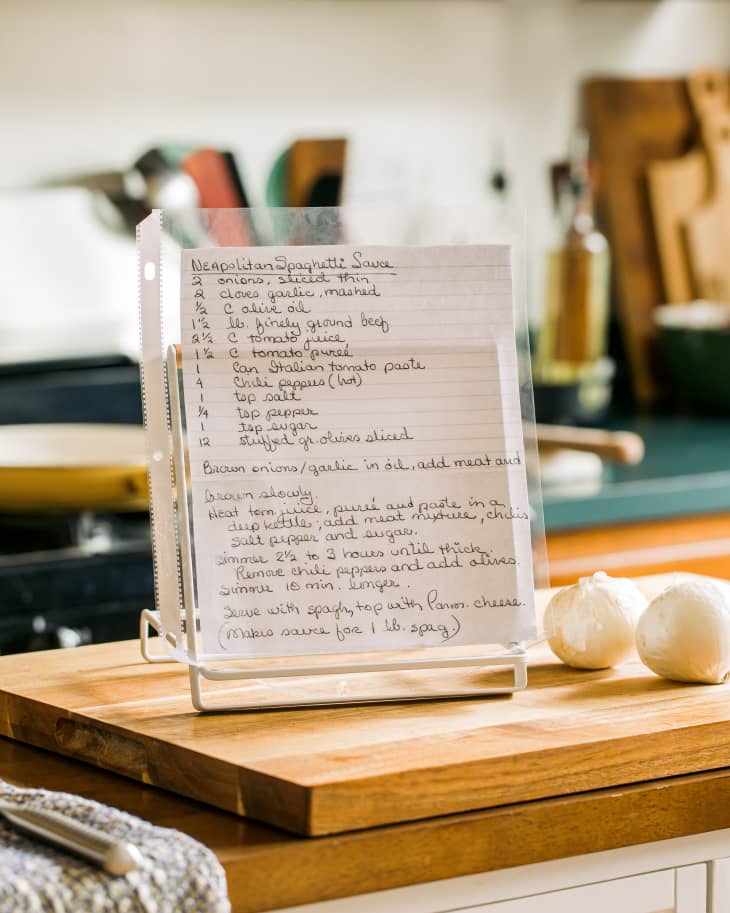 Neapolitan Spaghetti Sauce
2 onions, sliced thin
2 cloves garlic, mashed
1/2 C olive oil
1 1/2 lb. finely ground beef
2 1/2 C tomato juice
1 1/2 C tomato pureé
1 Can Italian tomato paste
4 Chili peppers (hot)
1 tsp salt
1/4 tsp pepper
1 tsp sugar
12 stuffed gr. olives sliced
Brown onions/garlic in oil, add meat and
brown slowly.
Heat tom. juice, pureé and paste in a
deep kettle; add meat mixture, chilis
salt pepper and sugar.
Simmer 2 1/2 to 3 hours until thick.
Remove chili peppers and add olives.
Simmer 10 min. longer.
Serve with spagh, top with Parm. cheese.
(Makes sauce for 1 lb. spag.)